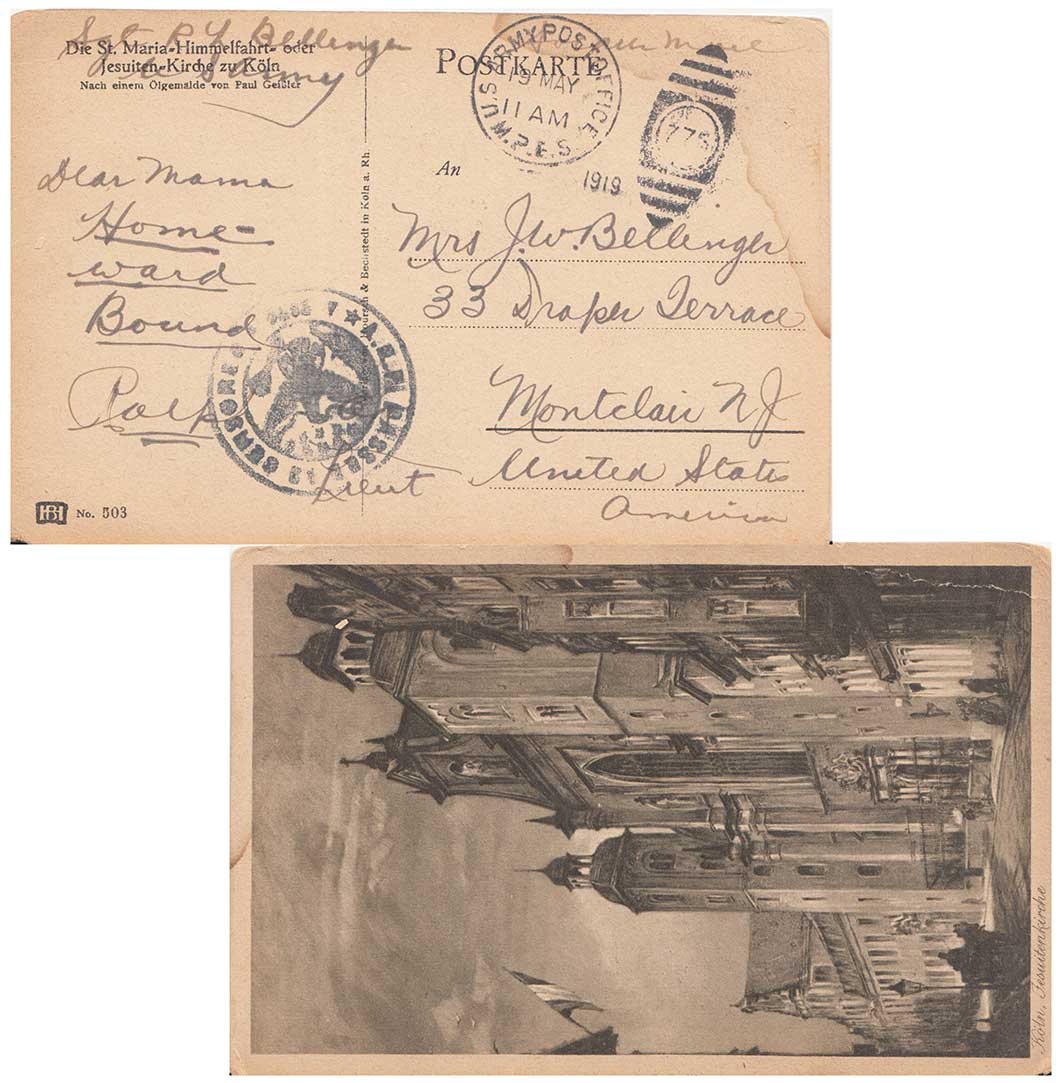 Sgt R L Bellenger
Die St. Maria-Himmelfahrt- oder
Jesuiten-Kirche zu Köln
Nach einem Ölgemälde von Paul Geißler
U S Army
POSTKARTE
U.S. ARMY POST OFFICE
19 MAY
11 AM
M.P.E.S.
1919
775
An
Dear Mama
Home-
ward
Bound
Ralph
Mrs J.W. Bellenger
33 Draper Terrace
Montclair NJ
United States
America
& Bechstedt in Köln a. Rh.
A.E.F. PASSED
Lieut
HB
No. 503
Köln, Jesuitenkirche